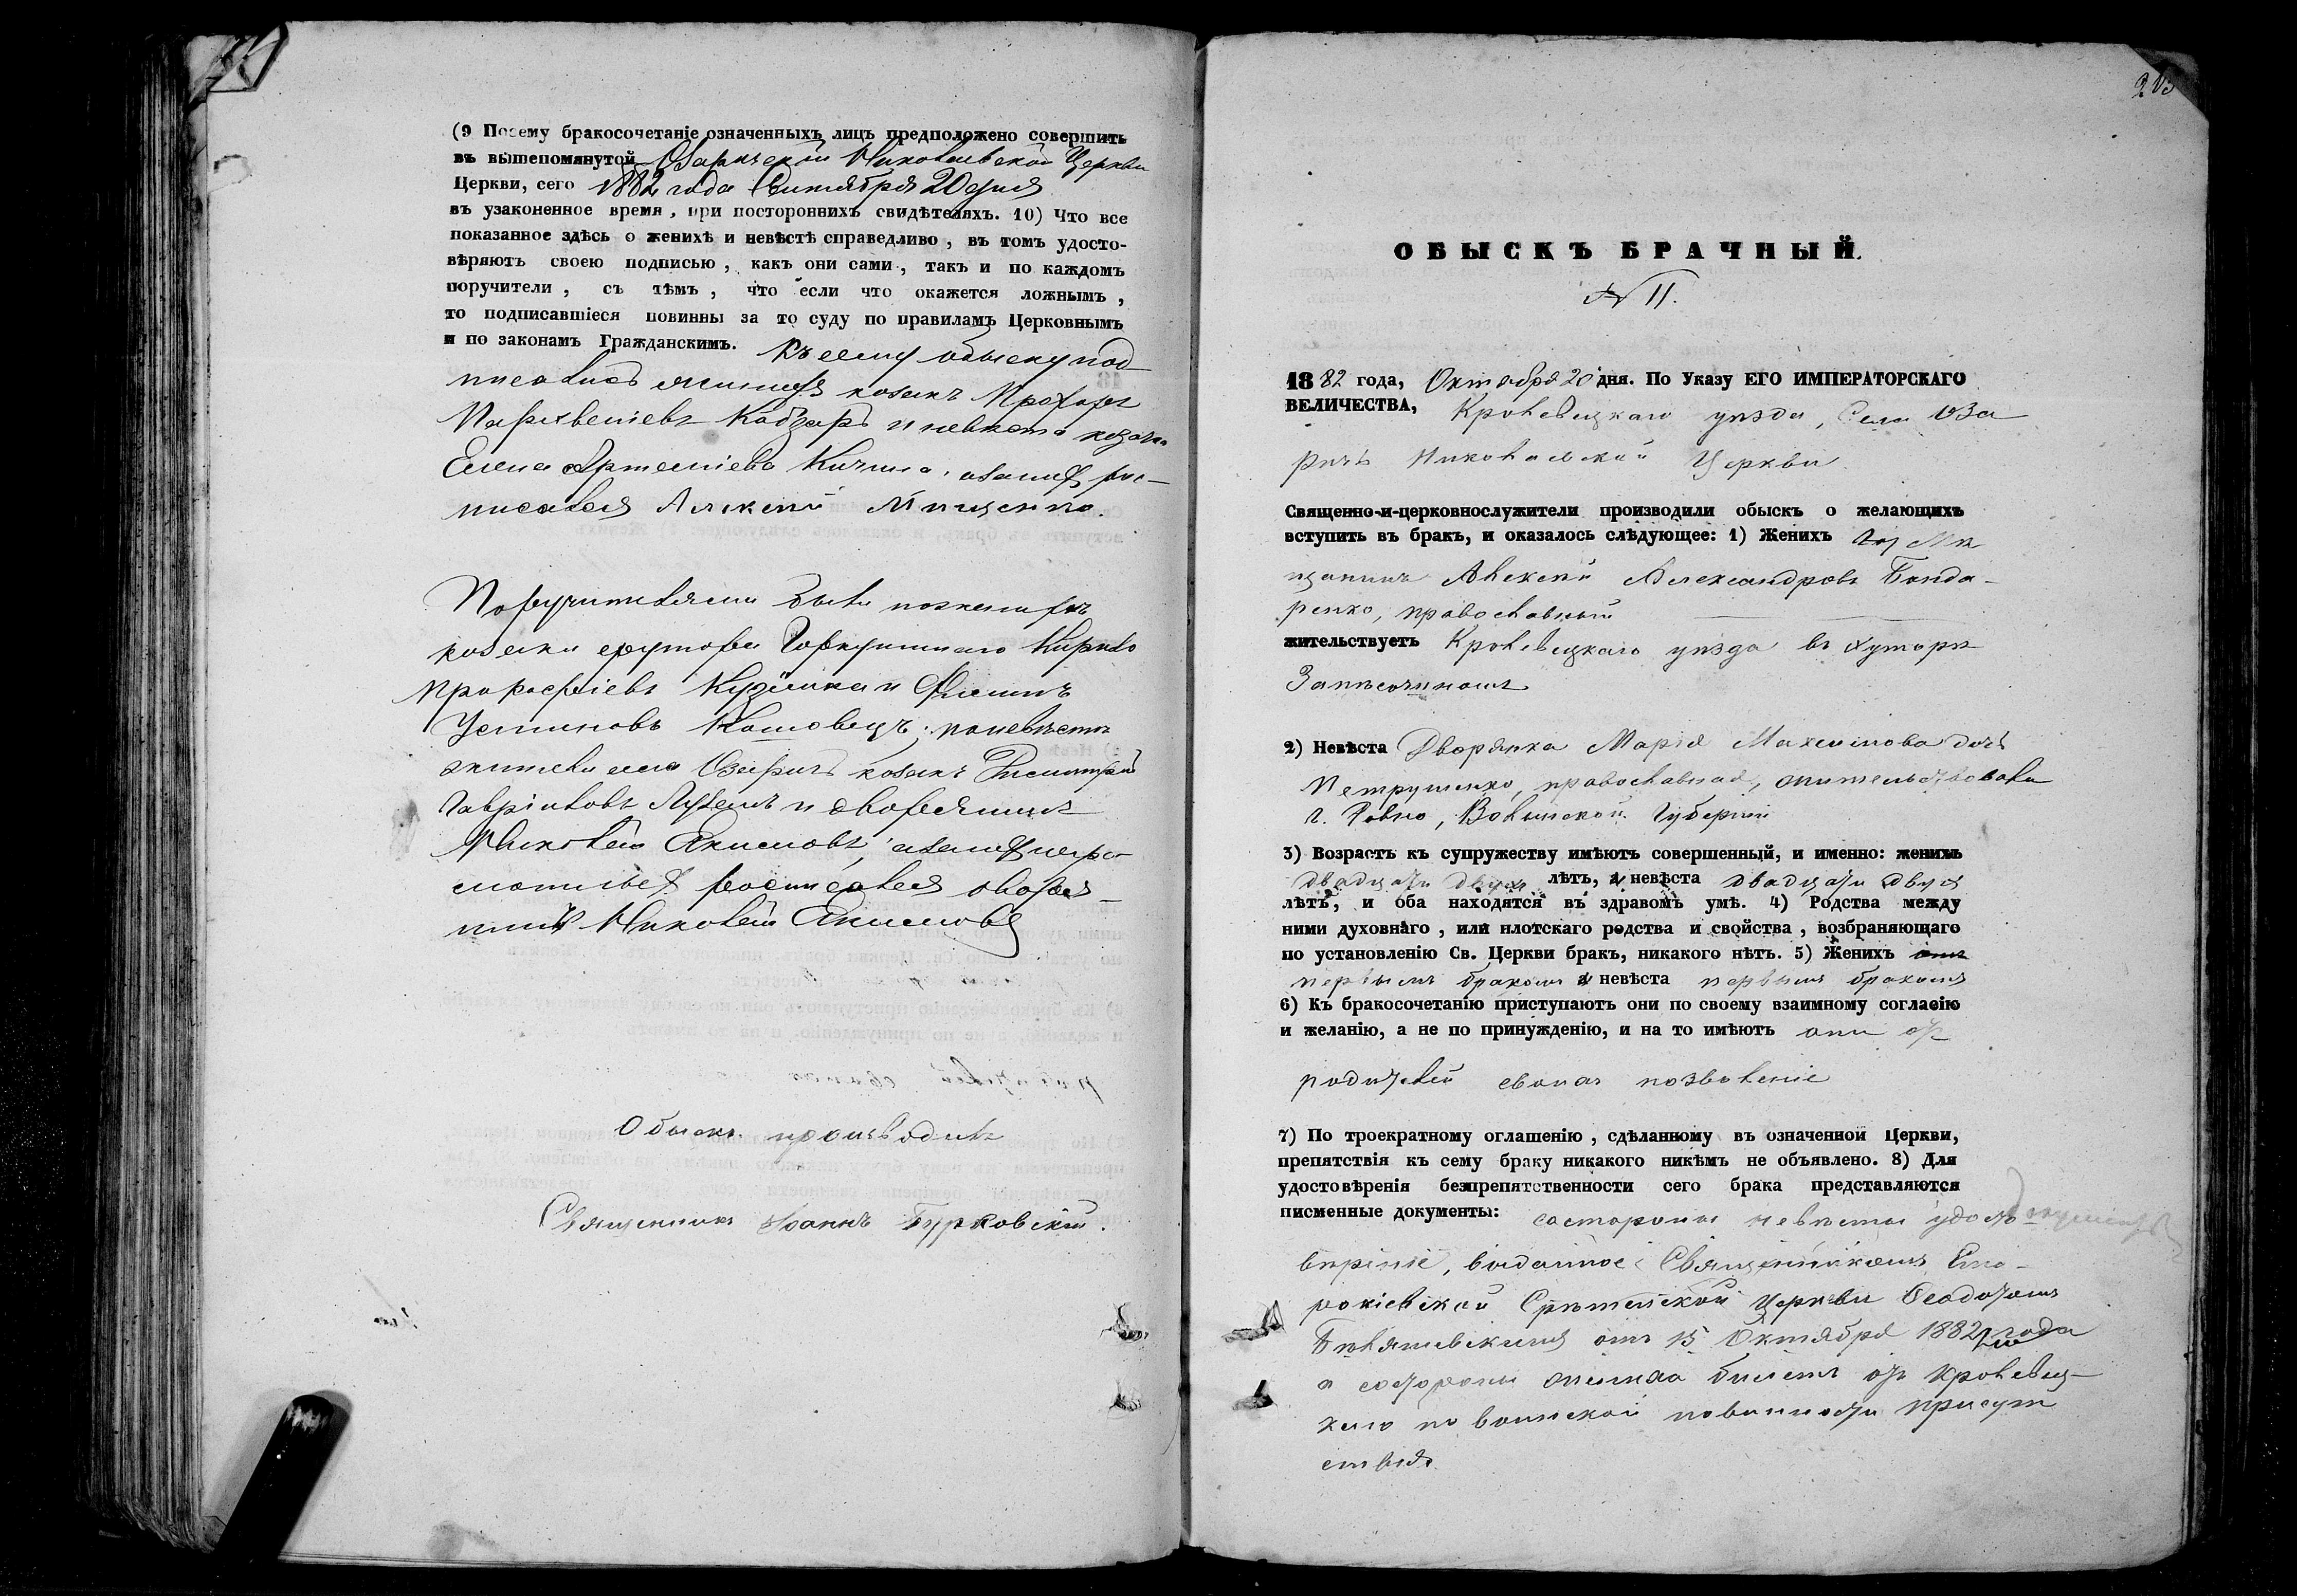 (9 Посему бракосочетаніе означенныхъ лицъ предположено совершить
въ вышепомянутой Озаричской Николаевской Церкви
Церкви, сего 1882 года Сентября 20 дня
въ узаконенное время, при постороннихъ свидѣтеляхъ. 10) Что все
показанное здѣсь о женихѣ и невѣстѣ справедливо, въ томъ удосто-
вѣряютъ своею подписью, какъ они сами, такъ и по каждомъ
поручители, съ тѣмъ, что если что окажется ложнымъ,
то подписавшіеся повинны за то суду по правиламъ Церковнымъ
и по законамъ Гражданскимъ. Къ сему обыску под
писались женихъ козакъ Прохоръ
Кобзарь и невѣста козачка
Елена Артеміева а за нихъ рос-
писался Алексѣй Мищенко.
Поручителями были по женихѣ
козаки хутора Кирило
Прокофіевъ и Филипъ
Устиновъ по невѣстѣ
жители села Озаричъ козакъ Димитрій
Гавріиловъ и дворянинъ
Николай Якимовъ, а за негра-
мотныхъ росписался дворя-
нинъ Николай Якимовъ
Обыскъ производилъ
Священникъ Іоаннъ Бурковскій.
203
ОБЫСКЪ БРАЧНЫЙ.
№ 11.
1882 года, Октября 20 дня. По Указу ЕГО ИМПЕРАТОРСКАГО
ВЕЛИЧЕСТВА, Кролевецкаго уѣзда, Села Оза
ричъ Николаевской Церкви
Священно-и-церковнослужители производили обыскъ о желающихъ
вступить въ бракъ, и оказалось слѣдующее: 1) Женихъ Мѣ
щанинъ Алексѣй Александровъ Бонда-
ренко, православный
жительствуетъ Кролевецкаго уѣзда въ хуторѣ
2) Невѣста Дворянка Марія Максимова дочь
Петрушенко, православная, жительствовала
г. Ровно, Волынской Губерніи
3) Возрастъ къ супружеству имѣютъ совершенный, и именно: женихъ
двадцати двухъ лѣтъ, и невѣста двадцати двухъ
лѣтъ, и оба находятся въ здравомъ умѣ. 4) Родства между
ними духовнаго, или плотскаго родства и свойства, возбраняющаго
по установленію Св. Церкви бракъ, никакого нѣтъ. 5) Женихъ
первымъ бракомъ и невѣста первымъ бракомъ
6) Къ бракосочетанію приступаютъ они по своему взаимному согласію
и желанію, а не по принужденію, и на то имѣютъ они от
родителей своихъ позволеніе
7) По троекратному оглашенію, сдѣланному въ означенной Церкви,
препятствія къ сему браку никакого никѣмъ не объявлено. 8) Для
удостовѣренія безпрепятственности сего брака представляются
писменные документы: со стороны невѣсты удосто
вѣреніе, выданное Священникомъ Ста-
рокіевской Срѣтенской Церкви Феодотомъ
отъ 15 Октября 1882 года
а со стороны жениха билетъ отъ Кролевец-
каго по воинской повинности присут
ствія.